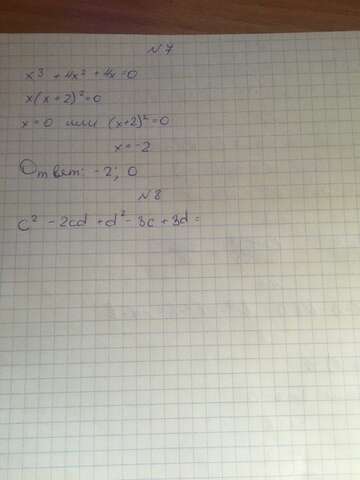 №7
x³ + 4x² + 4x = 0
x(x+2)² = 0
x = 0 или (x+2)² = 0
x = -2
Ответ: -2; 0
№8
c² - 2cd + d² - 3c + 3d =